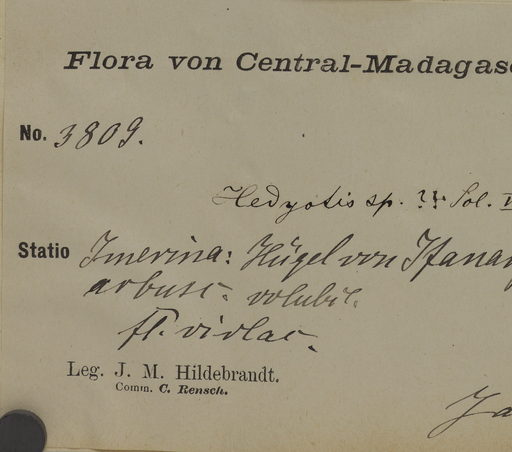 Flora von Central-Madagasc
No. 3809.
Hedyotis sp. ?? Sol.
Statio Imerina: Hügel von Ifanan
arbusc. volubil.
fl. violac.
Leg. J. M. Hildebrandt.
Comm. C. Rensch.
Ja